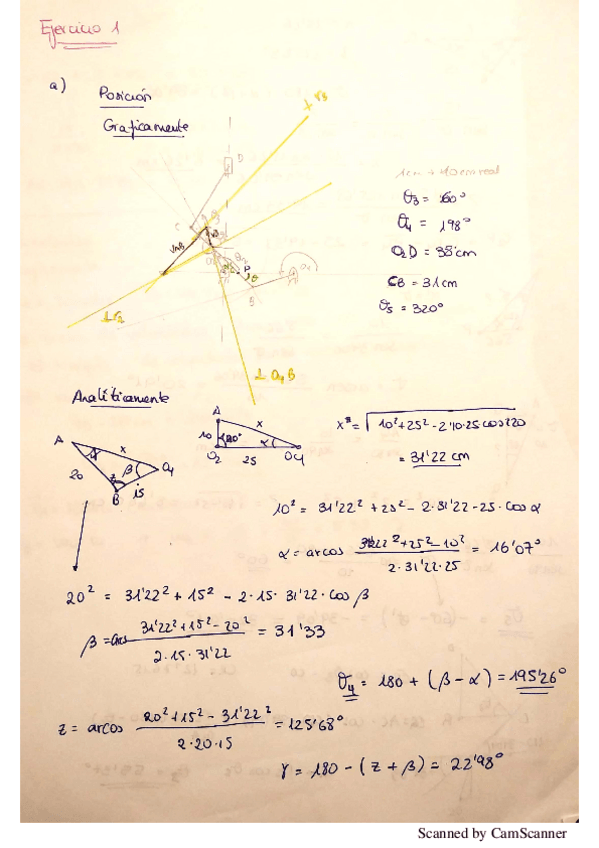 Ejercicio 1
a)
Posición
Graficamente
1cm → 10cm real
D
C
P
B
O4
⊥ O4B
θ3 = 160°
θ4 = 198°
O2D = 38 cm
CB = 31 cm
θ5 = 320°
Analíticamente
A
x
20
β
O4
z
B
15
A
10
x
α
O2
25
O4
= 31'22 cm
10² = 31'22² + 25² - 2·31'22·25·cos α
α = arcos (31'22² + 25² - 10²) / (2·31'22·25) = 16'07°
20² = 31'22² + 15² - 2·15·31'22·cos β
31'22² + 15² - 20² / 2·15·31'22 = 31'33
θ4 = 180 + (β - α) = 195'26°
z = arcos (20² + 15² - 31'22²) / (2·20·15) = 125'68°
γ = 180 - (z + β) = 22'98°
Scanned by CamScanner